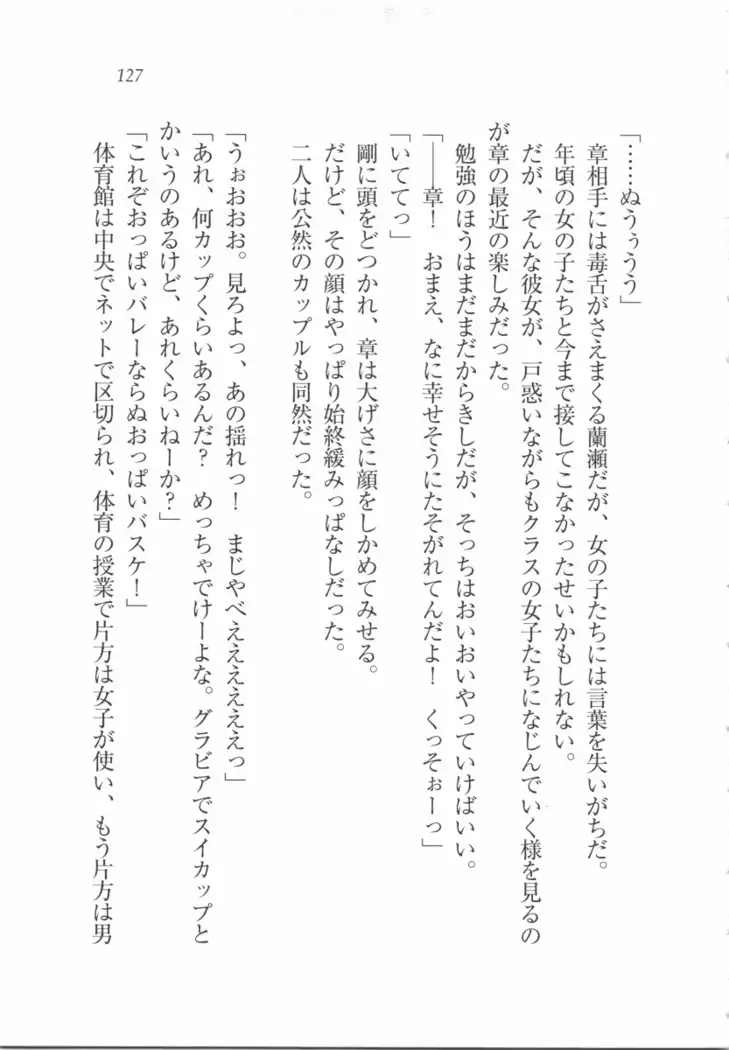 127
「……ぬうぅうう」
章相手には毒舌がさえまくる蘭瀬だが、女の子たちには言葉を失いがちだ。
年頃の女の子たちと今まで接してこなかったせいかもしれない。
だが、そんな彼女が、戸惑いながらもクラスの女子たちになじんでいく様を見るの
が章の最近の楽しみだった。
勉強のほうはまだまだからきしだが、そっちはおいおいやっていけばいい。
「――章！　おまえ、なに幸せそうにたそがれてんだよ！　くっそぉーっ」
「いててっ」
剛に頭をどつかれ、章は大げさに顔をしかめてみせる。
だけど、その顔はやっぱり始終緩みっぱなしだった。
二人は公然のカップルも同然だった。
「うぉおおお。見ろよっ、あの揺れっ！　まじやべえええええっ」
「あれ、何カップくらいあるんだ？　めっちゃでけーよな。グラビアでスイカップと
かいうのあるけど、あれくらいねーか？」
「これぞおっぱいバレーならぬおっぱいバスケ！」
体育館は中央でネットで区切られ、体育の授業で片方は女子が使い、もう片方は男